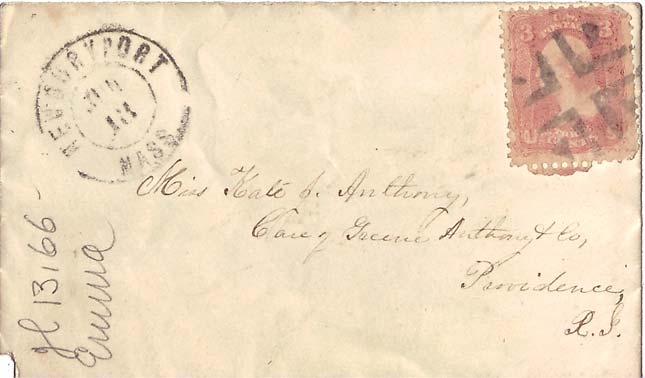 NEWBURYPORT
13
MASS
3
3
Miss Kate J. Anthony,
Care of Greene Anthony & Co,
Providence,
R.I.
Jl 13, 66
Emma